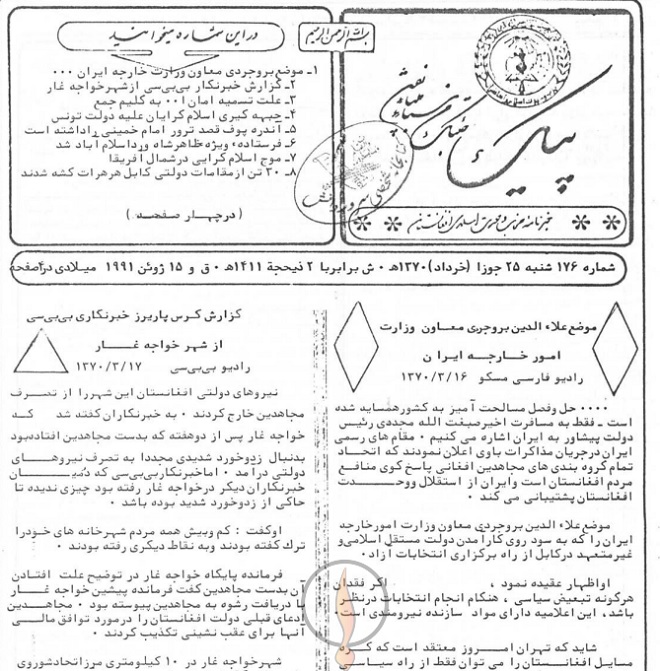 بسم الله الرحمن الرحیم
در این شماره میخوانید
۱ـ موضع بروجردی معاون وزارت خارجه ایران ۰۰۰
۲ـ گزارش خبرنگار بی‌بی‌سی از شهر خواجه غار
۳ـ علت تسمیه امان ا۰۰ به کلیم جمع
۴ـ جبهه گیری اسلام گرایان علیه دولت تونس
۵ـ اندره پوف قصد ترور امام خمینی را داشته است
۶ـ فرستاده ویژه ظاهرشاه وارد اسلام آباد شد
۷ـ موج اسلام گرایی در شمال آفریقا
۸ـ ۳۰ تن از مقامات دولتی کابل در هرات کشته شدند
(در چهار صفحه)
پیک
خبرنامه حزب وحدت اسلامی افغانستان
شماره ۱۷۶ شنبه ۲۵ جوزا (خرداد) ۱۳۷۰ه‍ ۰ ش برابر با ۲ ذیحجة ۱۴۱۱ه‍ ۰ ق و ۱۵ ژوئن ۱۹۹۱ میلادی در ۴ صفحه
موضع علاء الدین بروجردی معاون وزارت
امور خارجه ایران
رادیو فارسی مسکو ۱۳۷۰/۳/۱۶
۰۰۰۰ حل و فصل مسالحت آمیز به کشور همسایه شده
است ـ فقط به مسافرت اخیر صبغت الله مجددی رئیس
دولت پیشاور به ایران اشاره می کنیم ۰ مقام های رسمی
ایران در جریان مذاکرات باوی اعلان نمودند که اتحاد
تمام گروه بندی های مجاهدین افغانی پاسخ گوی منافع
مردم افغانستان است و ایران از استقلال و وحدت
افغانستان پشتیبانی می کند ۰
موضع علاء الدین بروجردی معاون وزارت امور خارجه
ایران را که به سود روی کار آمدن دولت مستقل اسلامی و
غیر متعهد در کابل از راه برگزاری انتخابات آزاد ۰
او اظهار عقیده نمود ، اگر فقدان
هرگونه تبعیض سیاسی ، هنگام انجام انتخابات در نظر
باشد، این اعلامیه دارای مواد سازنده نیرومندی است ۰
شاید که تهران امروز معتقد است که
مسایل افغانستان را می توان فقط از راه سیاسی
گزارش کرس پاریرز خبرنگاری بی‌بی‌سی
از شهر خواجه غار
رادیو بی‌بی‌سی ۱۳۷۰/۳/۱۷
نیروهای دولتی افغانستان این شهر را از تصرف
مجاهدین خارج کردند ۰ به خبرنگاران گفته شد که
خواجه غار پس از دو هفته که بدست مجاهدین افتاده بود
بدنبال زد و خورد شدیدی مجددا به تصرف نیروهای
دولتی در آمد ۰ اما خبرنگار بی‌بی‌سی که در میان
خبرنگاران دیگر در خواجه غار رفته بود چیزی ندیده تا
حاکی از زد و خورد شدید بوده باشد ۰
او گفت : کم و بیش همه مردم شهر خانه های خود را
ترک گفته بودند و به نقاط دیگری رفته بودند ۰
فرمانده پایگاه خواجه غار در توضیح علت افتادن
آن بدست مجاهدین گفت فرمانده پیشین خواجه غار
با دریافت رشوه به مجاهدین پیوسته بود ۰ مجاهدین
ادعای قبلی دولت افغانستان را در مورد توافق مالی
آنها برای عقب نشینی تکذیب کردند ۰
شهر خواجه غار در ۱۰ کیلومتری مرز اتحاد شوروی